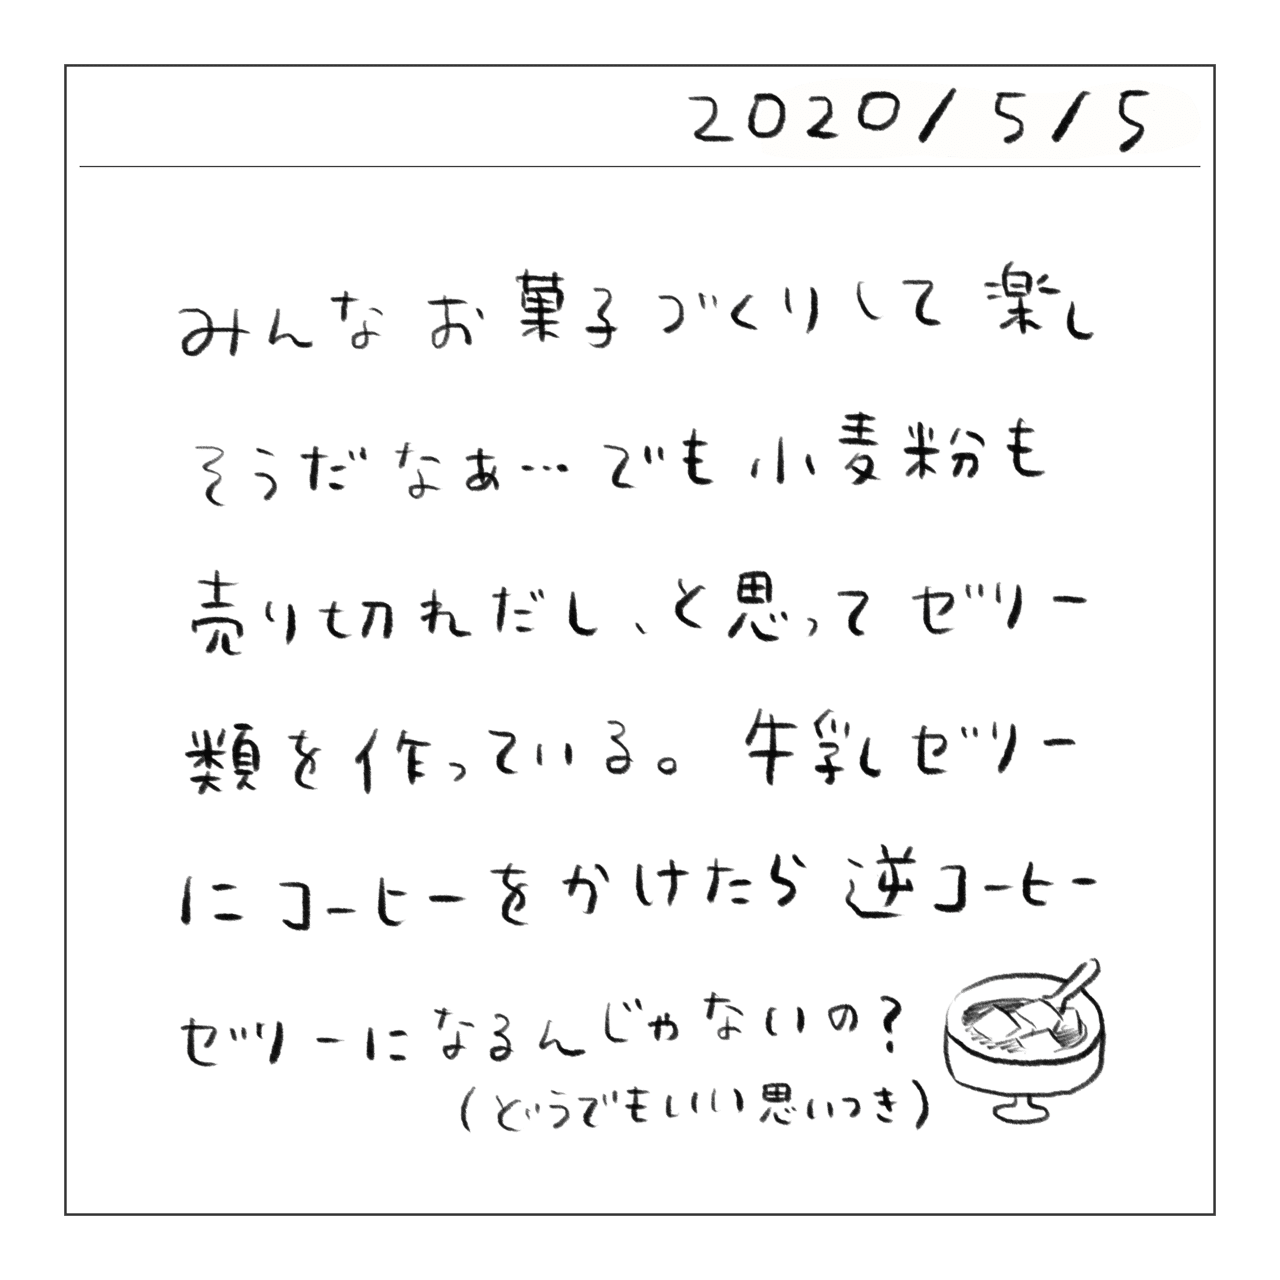 2020/5/5
みんなお菓子づくりして楽し
そうだなぁ…でも小麦粉も
売り切れだし、と思ってゼリー
類を作っている。牛乳ゼリー
にコーヒーをかけたら逆コーヒー
ゼリーになるんじゃないの？
（どうでもいい思いつき）